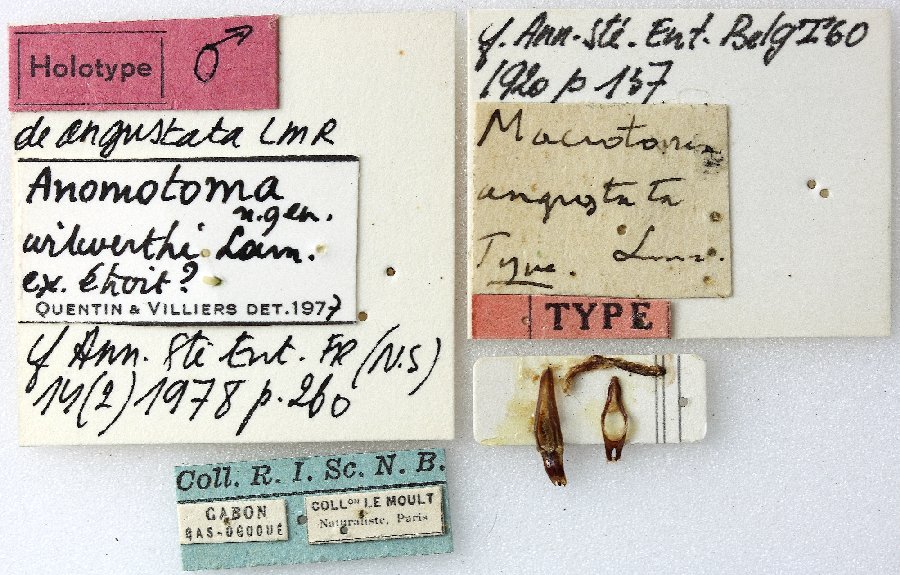 Holotype ♂
de angustata LMR
Anomotoma
n.gen.
wilwerthi Lam.
ex. étroit?
QUENTIN & VILLIERS DET.1977
cf Ann. Sté Ent. FR (N.S)
14(2) 1978 p. 260
cf. Ann. Sté. Ent. Belg T. 60
1920 p 137
Macrotoma
angustata
Type. Lmr.
TYPE
Coll. R. I. Sc. N. B.
GABON
BAS-OGOOUE
COLLon LE MOULT
Naturaliste, Paris